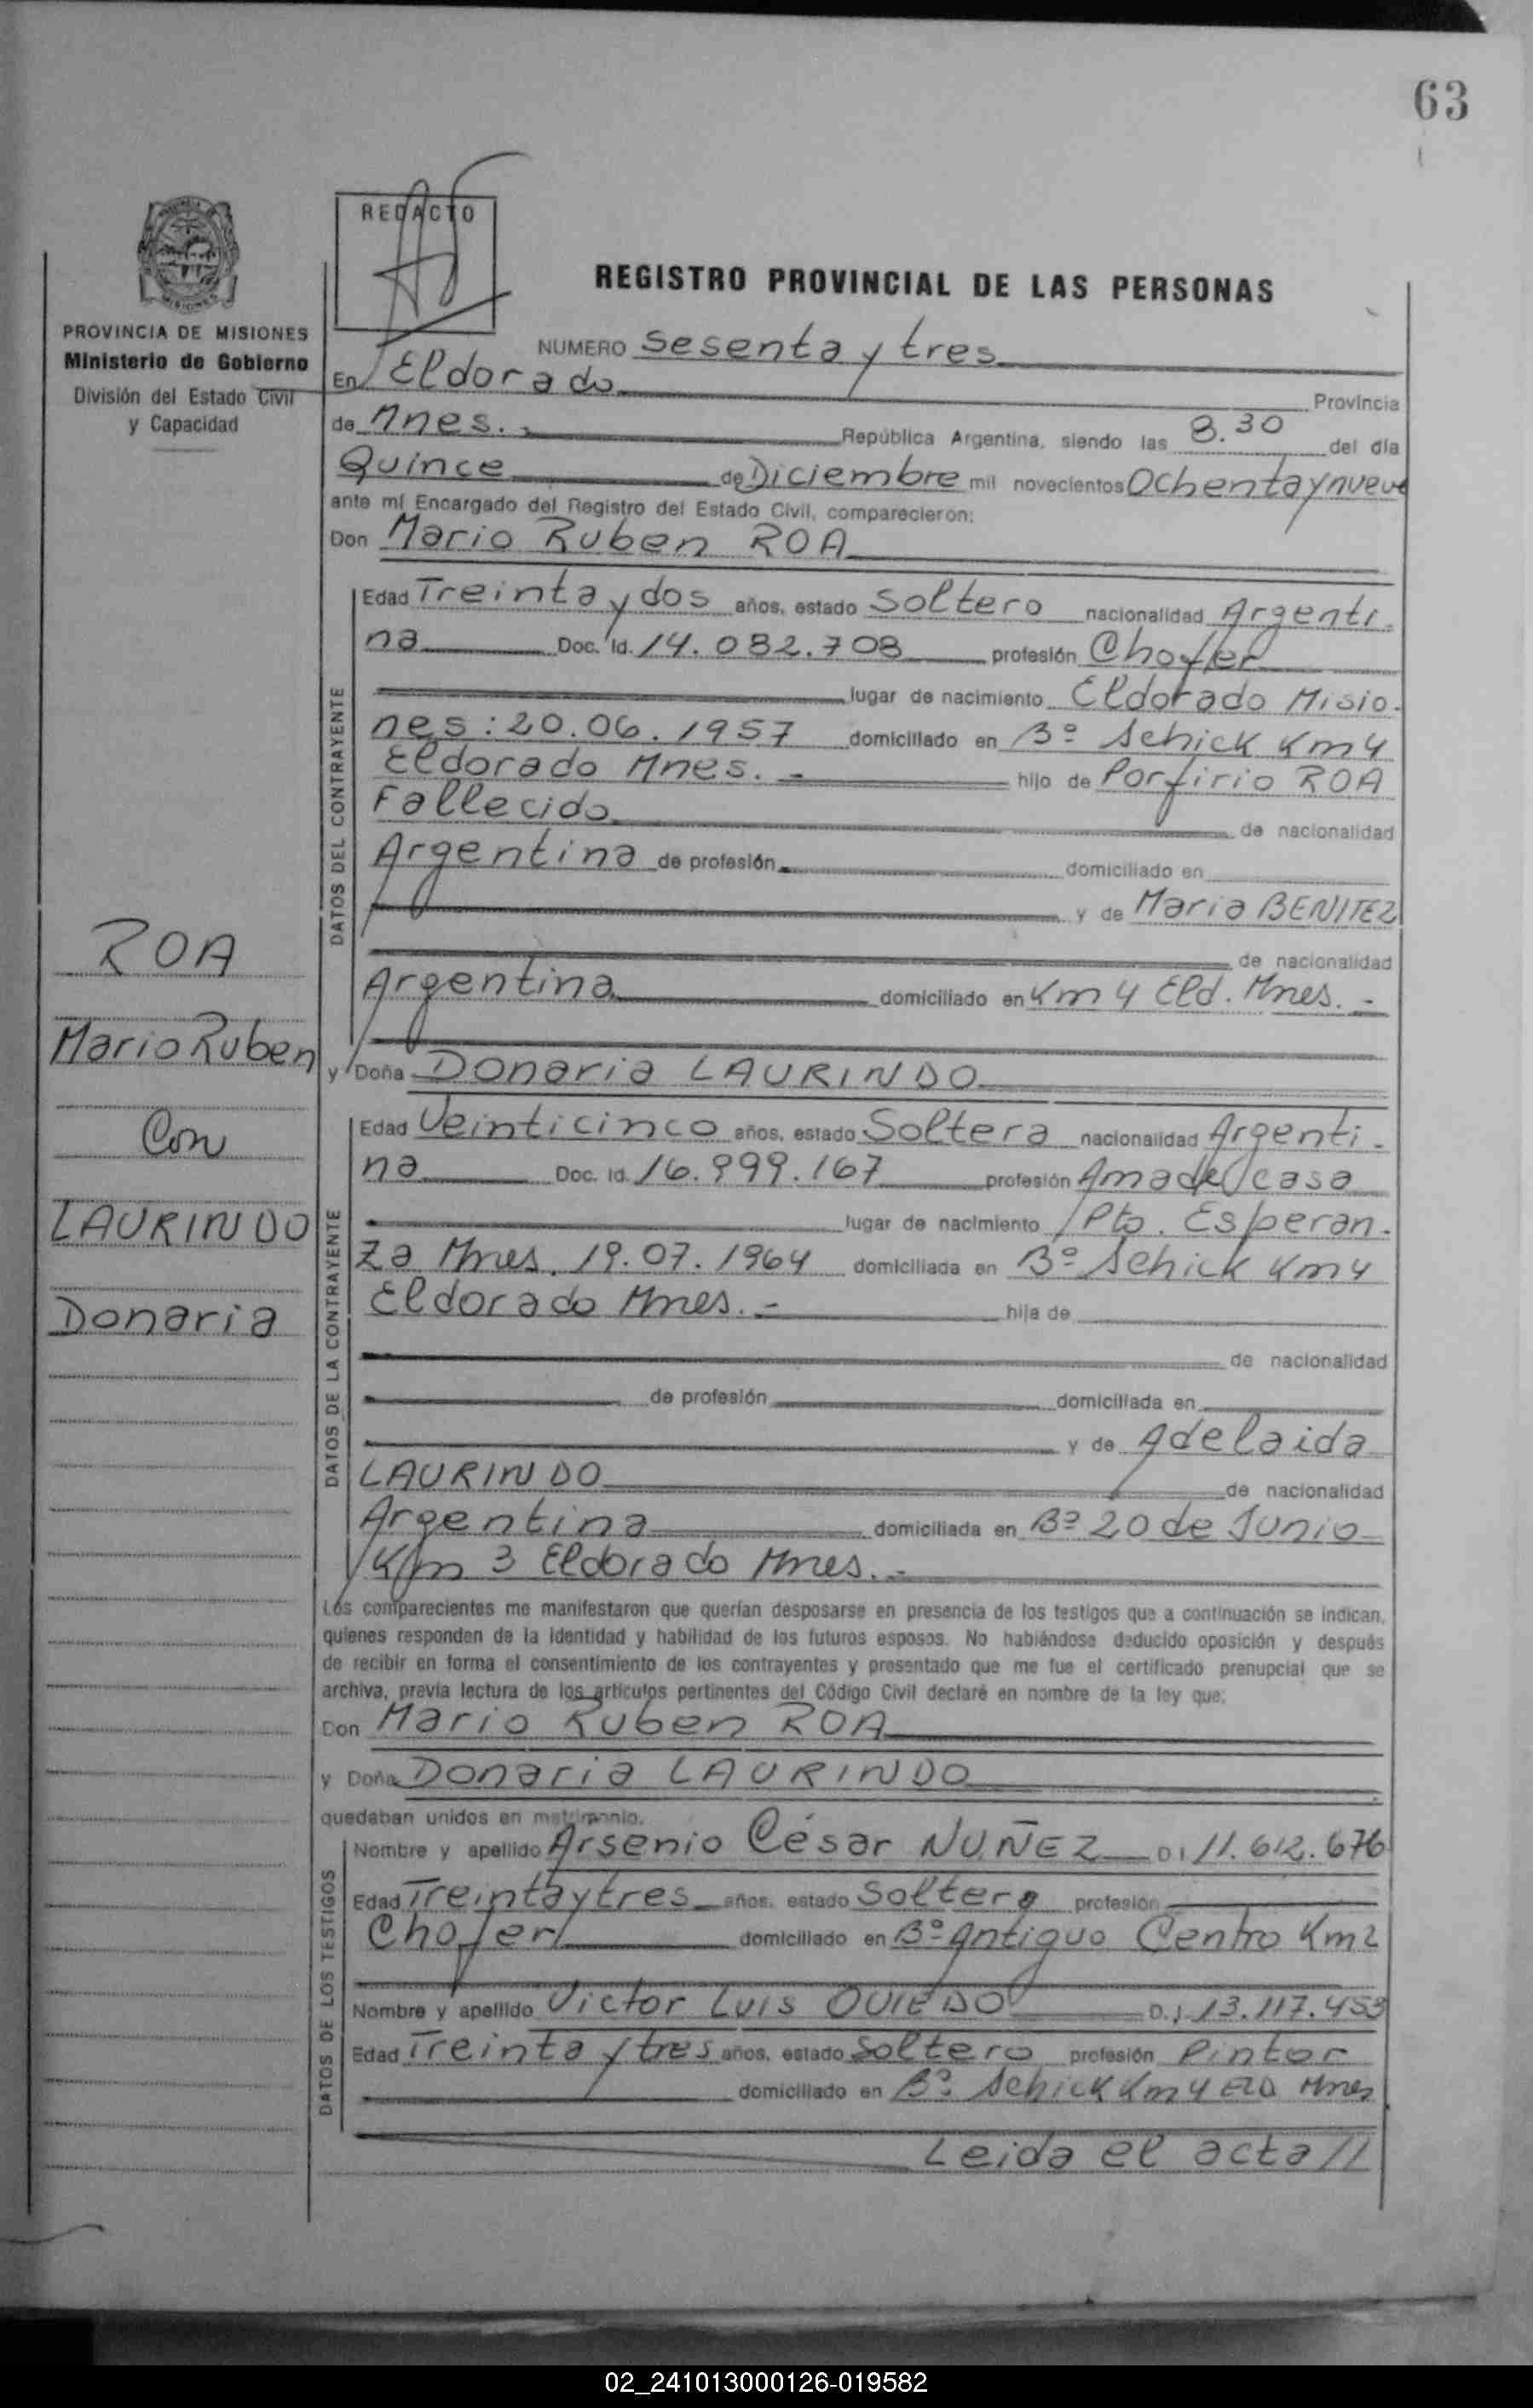 63
REDACTO
REGISTRO PROVINCIAL DE LAS PERSONAS
PROVINCIA DE MISIONES
Ministerio de Gobierno
División del Estado Civil
y Capacidad
NUMERO Sesenta y tres
En Eldorado Provincia
de Mnes. República Argentina, siendo las 8.30 del día
Quince de Diciembre mil novecientos Ochenta y nueve
ante mí Encargado del Registro del Estado Civil, comparecieron:
Don Mario Ruben ROA
DATOS DEL CONTRAYENTE
Edad Treinta y dos años, estado Soltero nacionalidad Argenti-
na Doc. Id. 14.082.708 profesión Chofer
lugar de nacimiento Eldorado Misio-
nes: 20.06.1957 domiciliado en Bº Schick Km 4
Eldorado Mnes. - hijo de Porfirio ROA
Fallecido de nacionalidad
Argentina de profesión domiciliado en
y de Maria BENITEZ
de nacionalidad
Argentina domiciliado en Km 4 Eld. Mnes. -
y Doña Donaria LAURINDO
DATOS DE LA CONTRAYENTE
Edad Veinticinco años, estado Soltera nacionalidad Argenti-
na Doc. Id. 16.999.167 profesión Ama de casa
lugar de nacimiento Pto. Esperan-
za Mnes. 19.07.1964 domiciliada en Bº Schick Km 4
Eldorado Mnes. - hija de
de nacionalidad
de profesión domiciliada en
y de Adelaida
LAURINDO de nacionalidad
Argentina domiciliada en Bº 20 de Junio
Km 3 Eldorado Mnes. -
Los comparecientes me manifestaron que querían desposarse en presencia de los testigos que a continuación se indican,
quienes responden de la identidad y habilidad de los futuros esposos. No habiéndose deducido oposición y después
de recibir en forma el consentimiento de los contrayentes y presentado que me fue el certificado prenupcial que se
archiva, previa lectura de los artículos pertinentes del Código Civil declaré en nombre de la ley que:
Don Mario Ruben ROA
y Doña Donaria LAURINDO
quedaban unidos en matrimonio.
DATOS DE LOS TESTIGOS
Nombre y apellido Arsenio César NUÑEZ D I 11.612.676
Edad Treinta y tres años, estado Soltero profesión
Chofer domiciliado en Bº Antiguo Centro Km 2
Nombre y apellido Victor Luis OVIEDO D.I 13.117.453
Edad Treinta y tres años, estado Soltero profesión Pintor
domiciliado en Bº Schick Km 4 ELD Mnes
Leida el acta //
ROA
Mario Ruben
Con
LAURINDO
Donaria
02_241013000126-019582